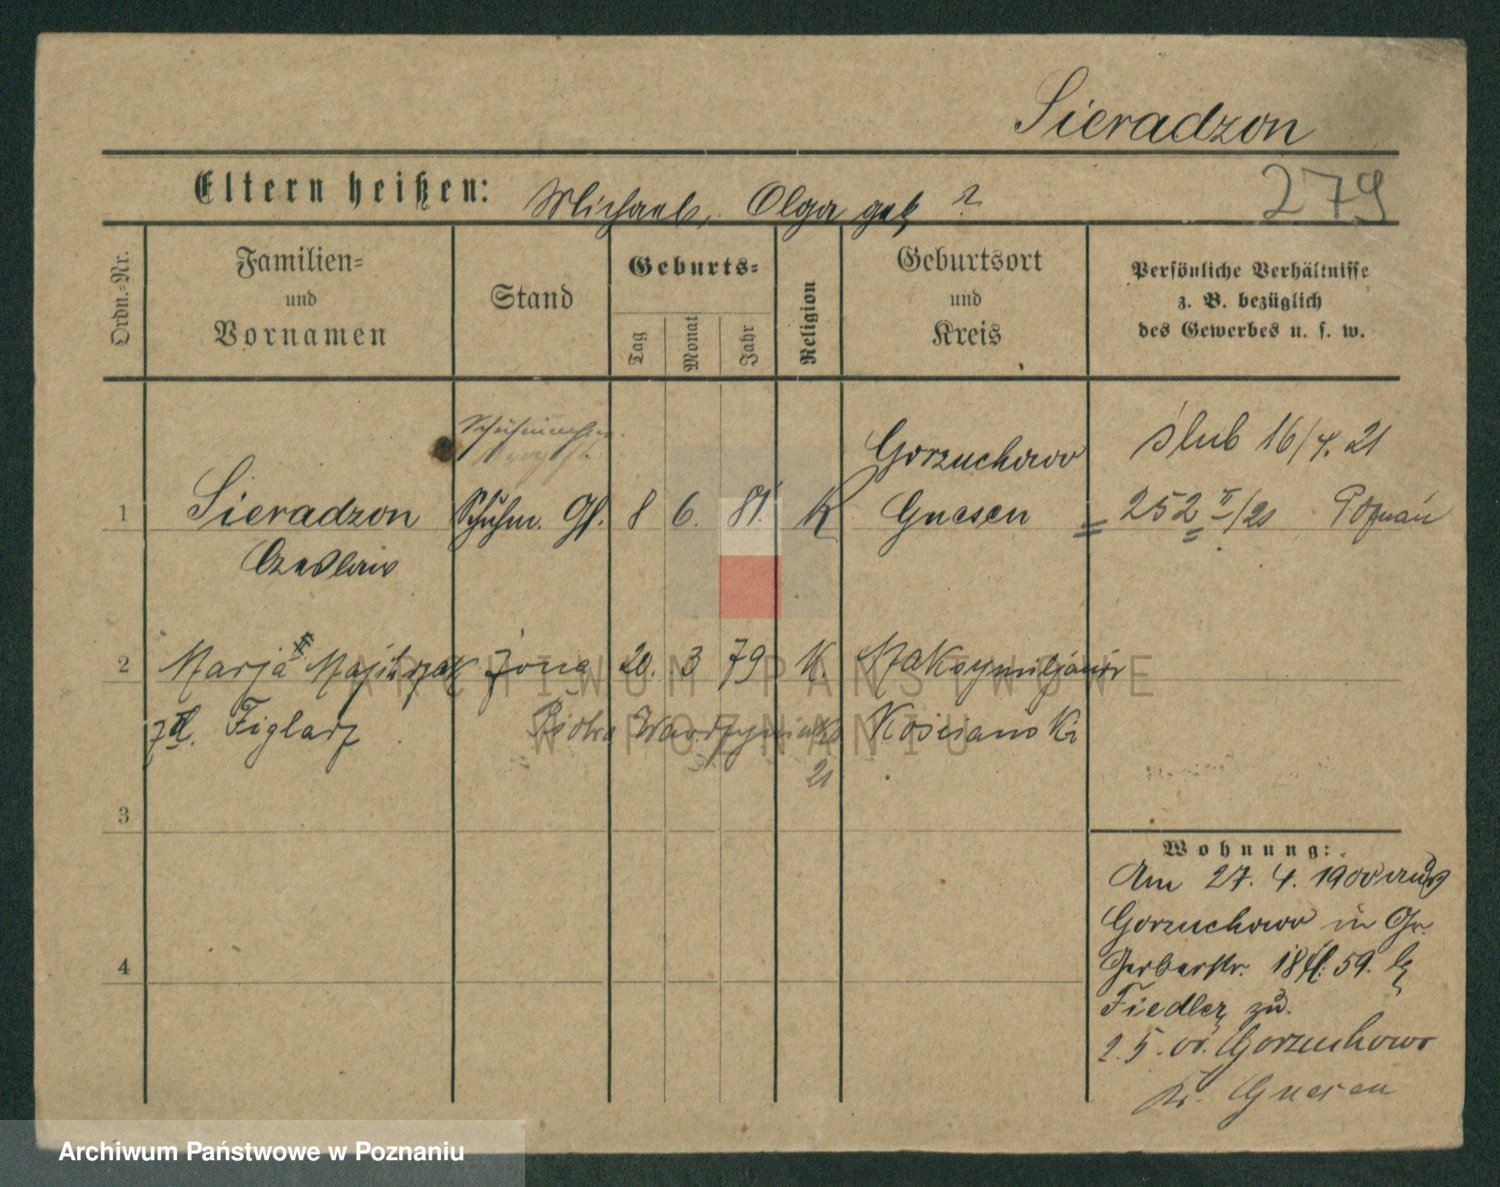 Sieradzon
279
Eltern heißen: Michael, Olga geb ?
Ordn.-Nr.
Familien- und Vornamen
Stand
Geburts-
Tag
Monat
Jahr
Religion
Geburtsort und Kreis
Persönliche Verhältnisse
z. B. bezüglich
des Gewerbes u. s. w.
Gorzuchowo
ślub 16/4. 21
1 Sieradzon Schuhm. Gs. 8 6. 81. K Gnesen = 252 II/21 Poznań
Czeslaw
2 Marja Majchrzak żona 20. 3 79 K.
zd. Figlarz Kościański
21
3
4
Wohnung:
Am 27. 4. 1900 aus
Gorzuchowo in Gr.
Gerberstr. 18 59. b
Fiedler zu.
2. 5. 01. Gorzuchowo
Kr. Gnesen
ARCHIWUM PAŃSTWOWE
W POZNANIU
Archiwum Państwowe w Poznaniu